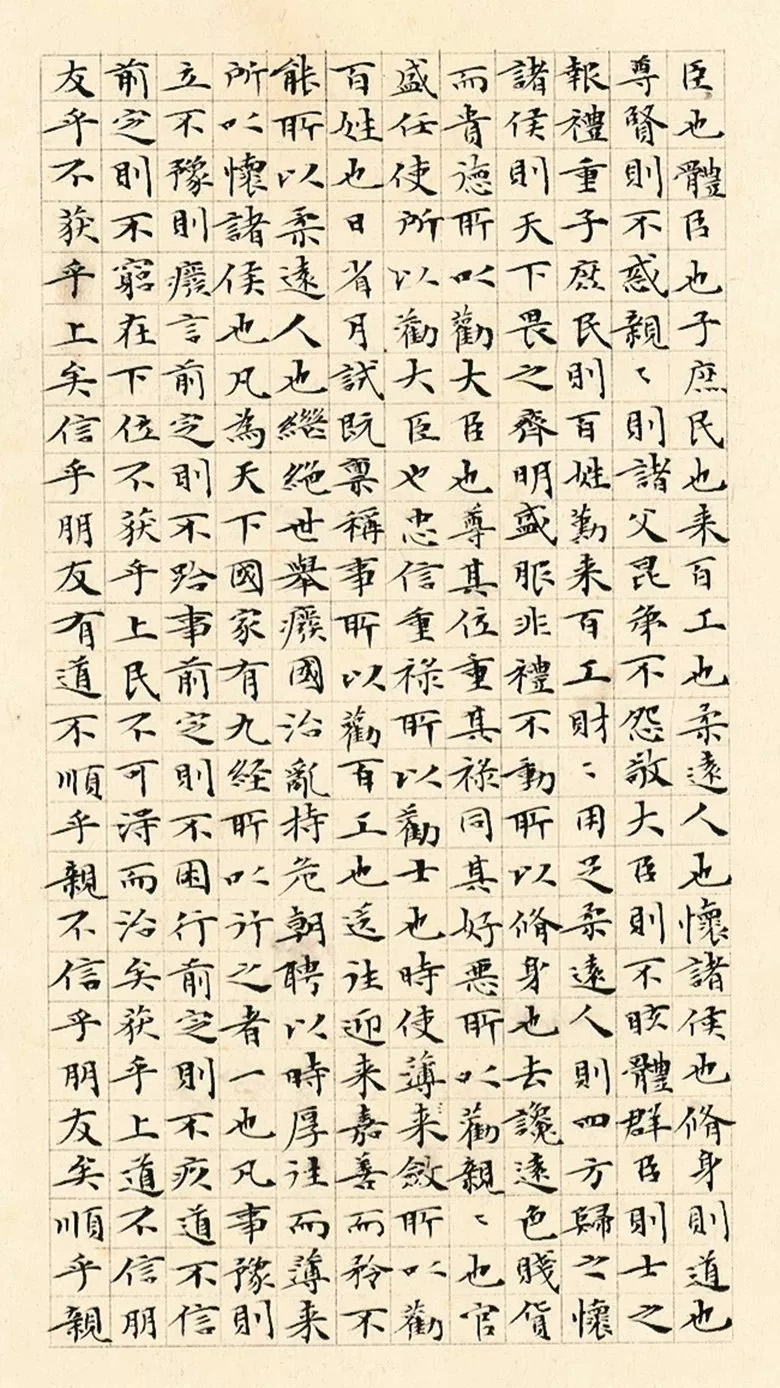 臣也體臣也子庶民也来百工也柔遠人也懷諸侯也脩身則道也
尊賢則不惑親〻則諸父昆弟不怨敬大臣則不眩體群臣則士之
報禮重子庶民則百姓勤来百工財〻用足柔遠人則四方歸之懷
諸侯則天下畏之齊明盛服非禮不動所以脩身也去讒遠色賤貨
而貴德所以勸大臣也尊其位重其禄同其好惡所以勸親〻也官
盛任使所以勸大臣也忠信重禄所以勸士也時使薄来斂所以勸
百姓也日省月試既禀稱事所以勸百工也送往迎来嘉善而矜不
能所以柔遠人也繼絶世舉廢國治亂持危朝聘以時厚往而薄来
所以懷諸侯也凡為天下國家有九経所以行之者一也凡事豫則
立不豫則廢言前定則不跲事前定則不困行前定則不疚道不信
前定則不窮在下位不获乎上民不可得而治矣获乎上道不信朋
友乎不获乎上矣信乎朋友有道不順乎親不信乎朋友矣順乎親